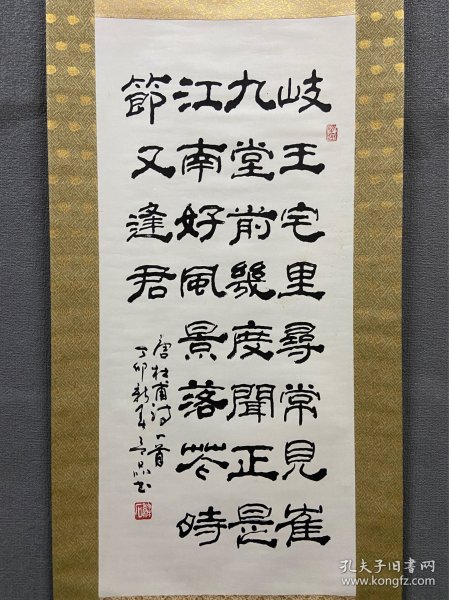 岐王宅里尋常見崔
九堂前幾度聞正是
江南好風景落花時
節又逢君
唐杜甫詩一首
丁卯新春
孔夫子旧书网
www.kongfz.com